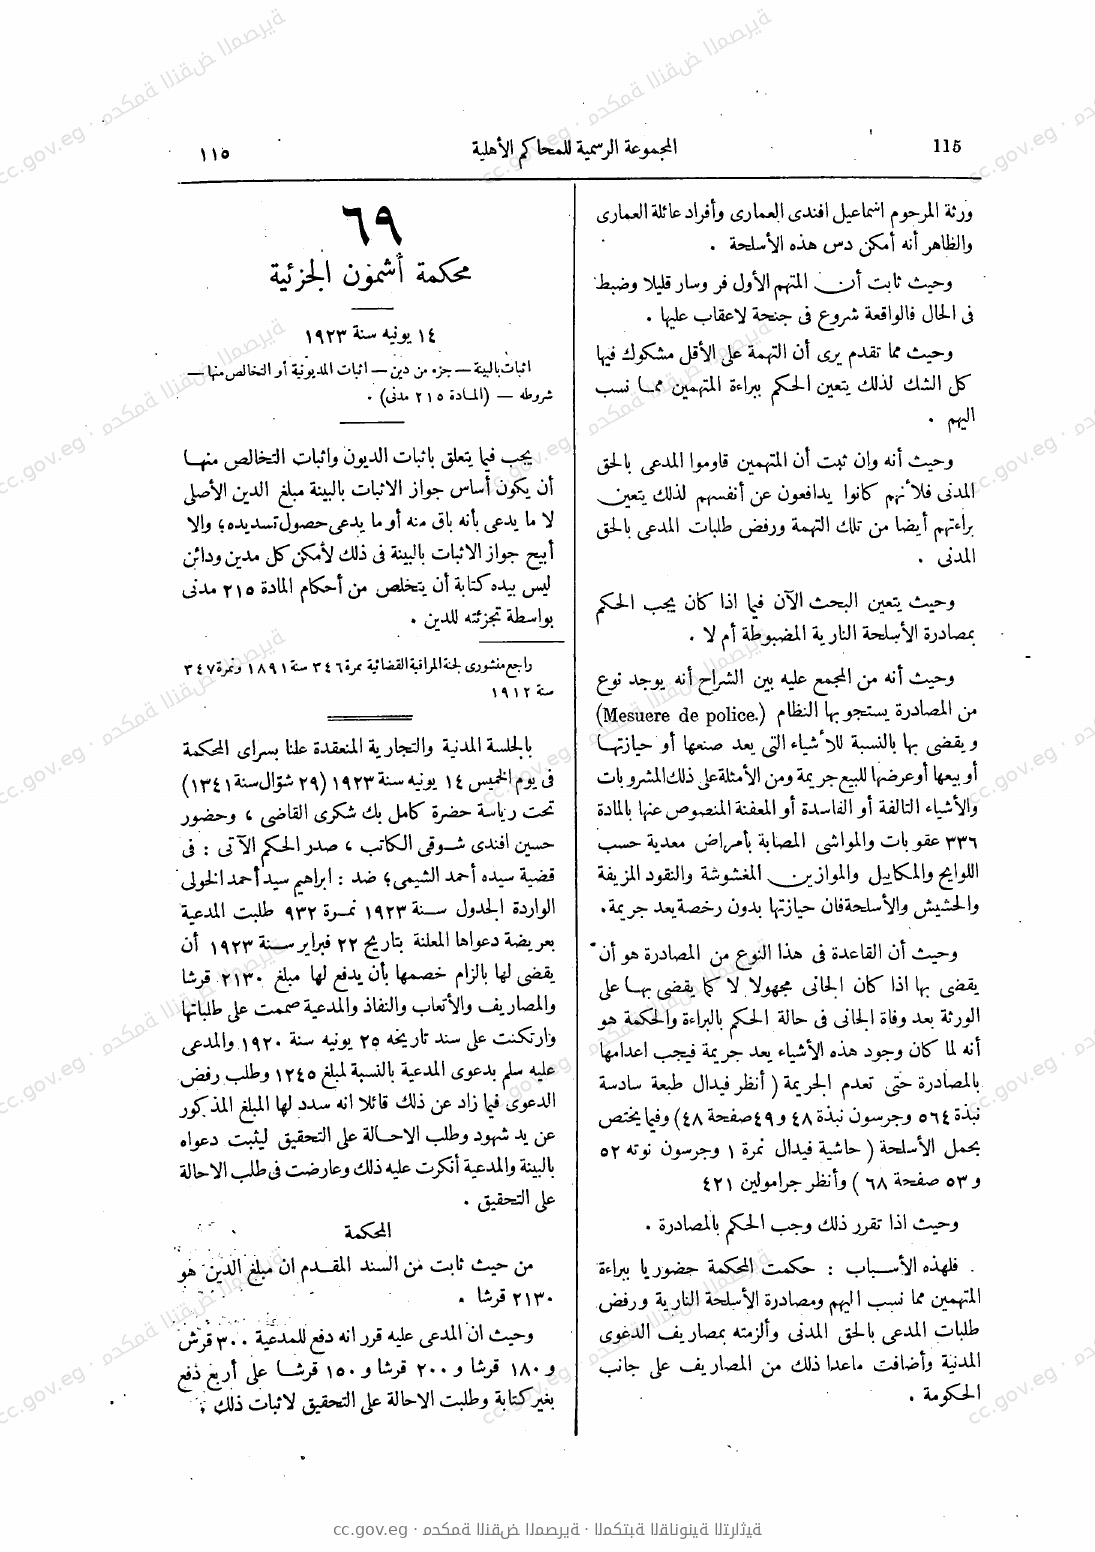 115
المجموعة الرسمية للمحاكم الأهلية
١١٥
ورثة المرحوم اسماعيل افندى العمارى وأفراد عائلة العمارى
والظاهر أنه أمكن دس هذه الأسلحة .
وحيث ثابت أن المتهم الأول فر وسار قليلا وضبط
فى الحال فالواقعة شروع فى جنحة لاعقاب عليها .
وحيث مما تقدم يرى أن التهمة على الأقل مشكوك فيها
كل الشك لذلك يتعين الحكم ببراءة المتهمين مما نسب
اليهم .
وحيث أنه وان ثبت أن المتهمين قاوموا المدعى بالحق
المدنى فلأنهم كانوا يدافعون عن أنفسهم لذلك يتعين
براءتهم أيضا من تلك التهمة ورفض طلبات المدعى بالحق
المدنى .
وحيث يتعين البحث الآن فيما اذا كان يجب الحكم
بمصادرة الأسلحة النارية المضبوطة أم لا .
وحيث أنه من المجمع عليه بين الشراح أنه يوجد نوع
من المصادرة يستجوبها النظام (Mesuere de police.)
ويقضى بها بالنسبة للأشياء التى يعد صنعها أو حيازتها
أو بيعها أو عرضها للبيع جريمة ومن الأمثلة على ذلك المشروبات
والأشياء التالفة أو الفاسدة أو المعفنة المنصوص عنها بالمادة
٣٣٦ عقوبات والمواشى المصابة بأمراض معدية حسب
اللوايح والمكاييل والموازين المغشوشة والنقود المزيفة
والحشيش والأسلحة فان حيازتها بدون رخصة يعد جريمة .
وحيث أن القاعدة فى هذا النوع من المصادرة هو أن
يقضى بها اذا كان الجانى مجهولا لا كما يقضى بها على
الورثة بعد وفاة الجانى فى حالة الحكم بالبراءة والحكمة هو
أنه لما كان وجود هذه الأشياء يعد جريمة فيجب اعدامها
بالمصادرة حتى تعدم الجريمة ( أنظر فيدال طبعة سادسة
نبذة ٥٦٤ وجرسون نبذة ٤٨ و ٤٩ صفحة ٤٨) وفيما يختص
بحمل الأسلحة ( حاشية فيدال نمرة ١ وجرسون نوته ٥٢
و ٥٣ صفحة ٦٨ ) وأنظر جرامولين ٤٢١
وحيث اذا تقرر ذلك وجب الحكم بالمصادرة .
فلهذه الأسباب : حكمت المحكمة حضوريا ببراءة
المتهمين مما نسب اليهم ومصادرة الأسلحة النارية ورفض
طلبات المدعى بالحق المدنى وألزمته بمصاريف الدعوى
المدنية وأضافت ماعدا ذلك من المصاريف على جانب
الحكومة .
٦٩
محكمة أشمون الجزئية
١٤ يونيه سنة ١٩٢٣
اثبات بالبينة — جزء من دين — اثبات المديونية أو التخالص منها —
شروطه — (المادة ٢١٥ مدنى) .
يجب فيما يتعلق باثبات الديون واثبات التخالص منها
أن يكون أساس جواز الاثبات بالبينة مبلغ الدين الأصلى
لا ما يدعى بأنه باق منه أو ما يدعى حصول تسديده؛ والا
أبيح جواز الاثبات بالبينة فى ذلك لأمكن كل مدين ودائن
ليس بيده كتابة أن يتخلص من أحكام المادة ٢١٥ مدنى
بواسطة تجزئته للدين .
راجع منشورى لجنة المراقبة القضائية نمرة ٣٤٦ سنة ١٨٩١ ونمرة ٣٤٧
سنة ١٩١٢
بالجلسة المدنية والتجارية المنعقدة علنا بسراى المحكمة
فى يوم الخميس ١٤ يونيه سنة ١٩٢٣ (٢٩ شوال سنة ١٣٤١)
تحت رياسة حضرة كامل بك شكرى القاضى ، وحضور
حسين افندى شوقى الكاتب ، صدر الحكم الآتى : فى
قضية سيده أحمد الشيمى؛ ضد : ابراهيم سيد أحمد الخولى
الواردة الجدول سنة ١٩٢٣ نمرة ٩٣٢ طلبت المدعية
بعريضة دعواها المعلنة بتاريخ ٢٢ فبراير سنة ١٩٢٣ أن
يقضى لها بالزام خصمها بأن يدفع لها مبلغ ٢١٣٠ قرشا
والمصاريف والأتعاب والنفاذ والمدعية صممت على طلباتها
وارتكنت على سند تاريخه ٢٥ يونيه سنة ١٩٢٠ والمدعى
عليه سلم بدعوى المدعية بالنسبة لمبلغ ١٢٤٥ وطلب رفض
الدعوى فيما زاد عن ذلك قائلا انه سدد لها المبلغ المذكور
عن يد شهود وطلب الاحالة على التحقيق ليثبت دعواه
بالبينة والمدعية أنكرت عليه ذلك وعارضت فى طلب الاحالة
على التحقيق .
المحكمة
من حيث ثابت من السند المقدم ان مبلغ الدين هو
٢١٣٠ قرشا .
وحيث ان المدعى عليه قرر انه دفع للمدعية ٣٠٠ قرش
و ١٨٠ قرشا و ٢٠٠ قرشا و ١٥٠ قرشا على أربع دفع
بغير كتابة وطلبت الاحالة على التحقيق لاثبات ذلك ؛
cc.gov.eg · محكمة النقض المصرية · المكتبة القانونية التراثية